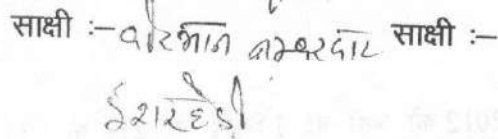 साक्षी :- वीरभान नम्बरदार साक्षी :-
ईशरहेडी